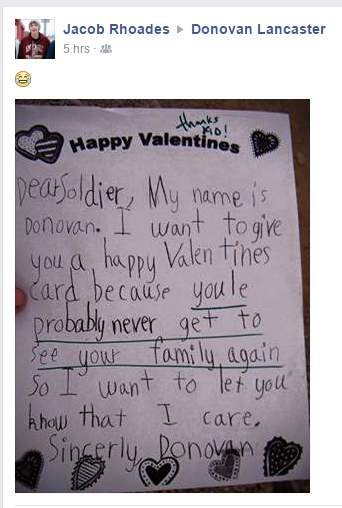 Jacob Rhoades ▸ Donovan Lancaster
5 hrs ·
thanks
XO!
Happy Valentines
Dear Soldier, My name is
Donovan. I want to give
you a happy Valentines
Card because youle
probably never get to
see your family again
So I want to let you
know that I care.
Sincerly, Donovan